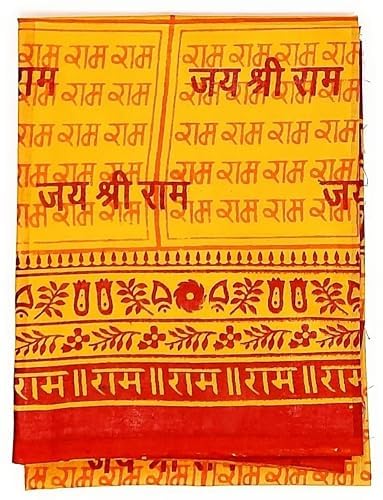 राम राम राम राम राम राम राम
राम जय श्री राम
राम राम राम राम राम राम राम
राम राम राम राम राम राम राम
राम राम राम राम राम राम राम
जय श्री राम जय
राम राम राम
राम ॥ राम ॥ राम ॥ राम ॥ राम
जय श्री राम